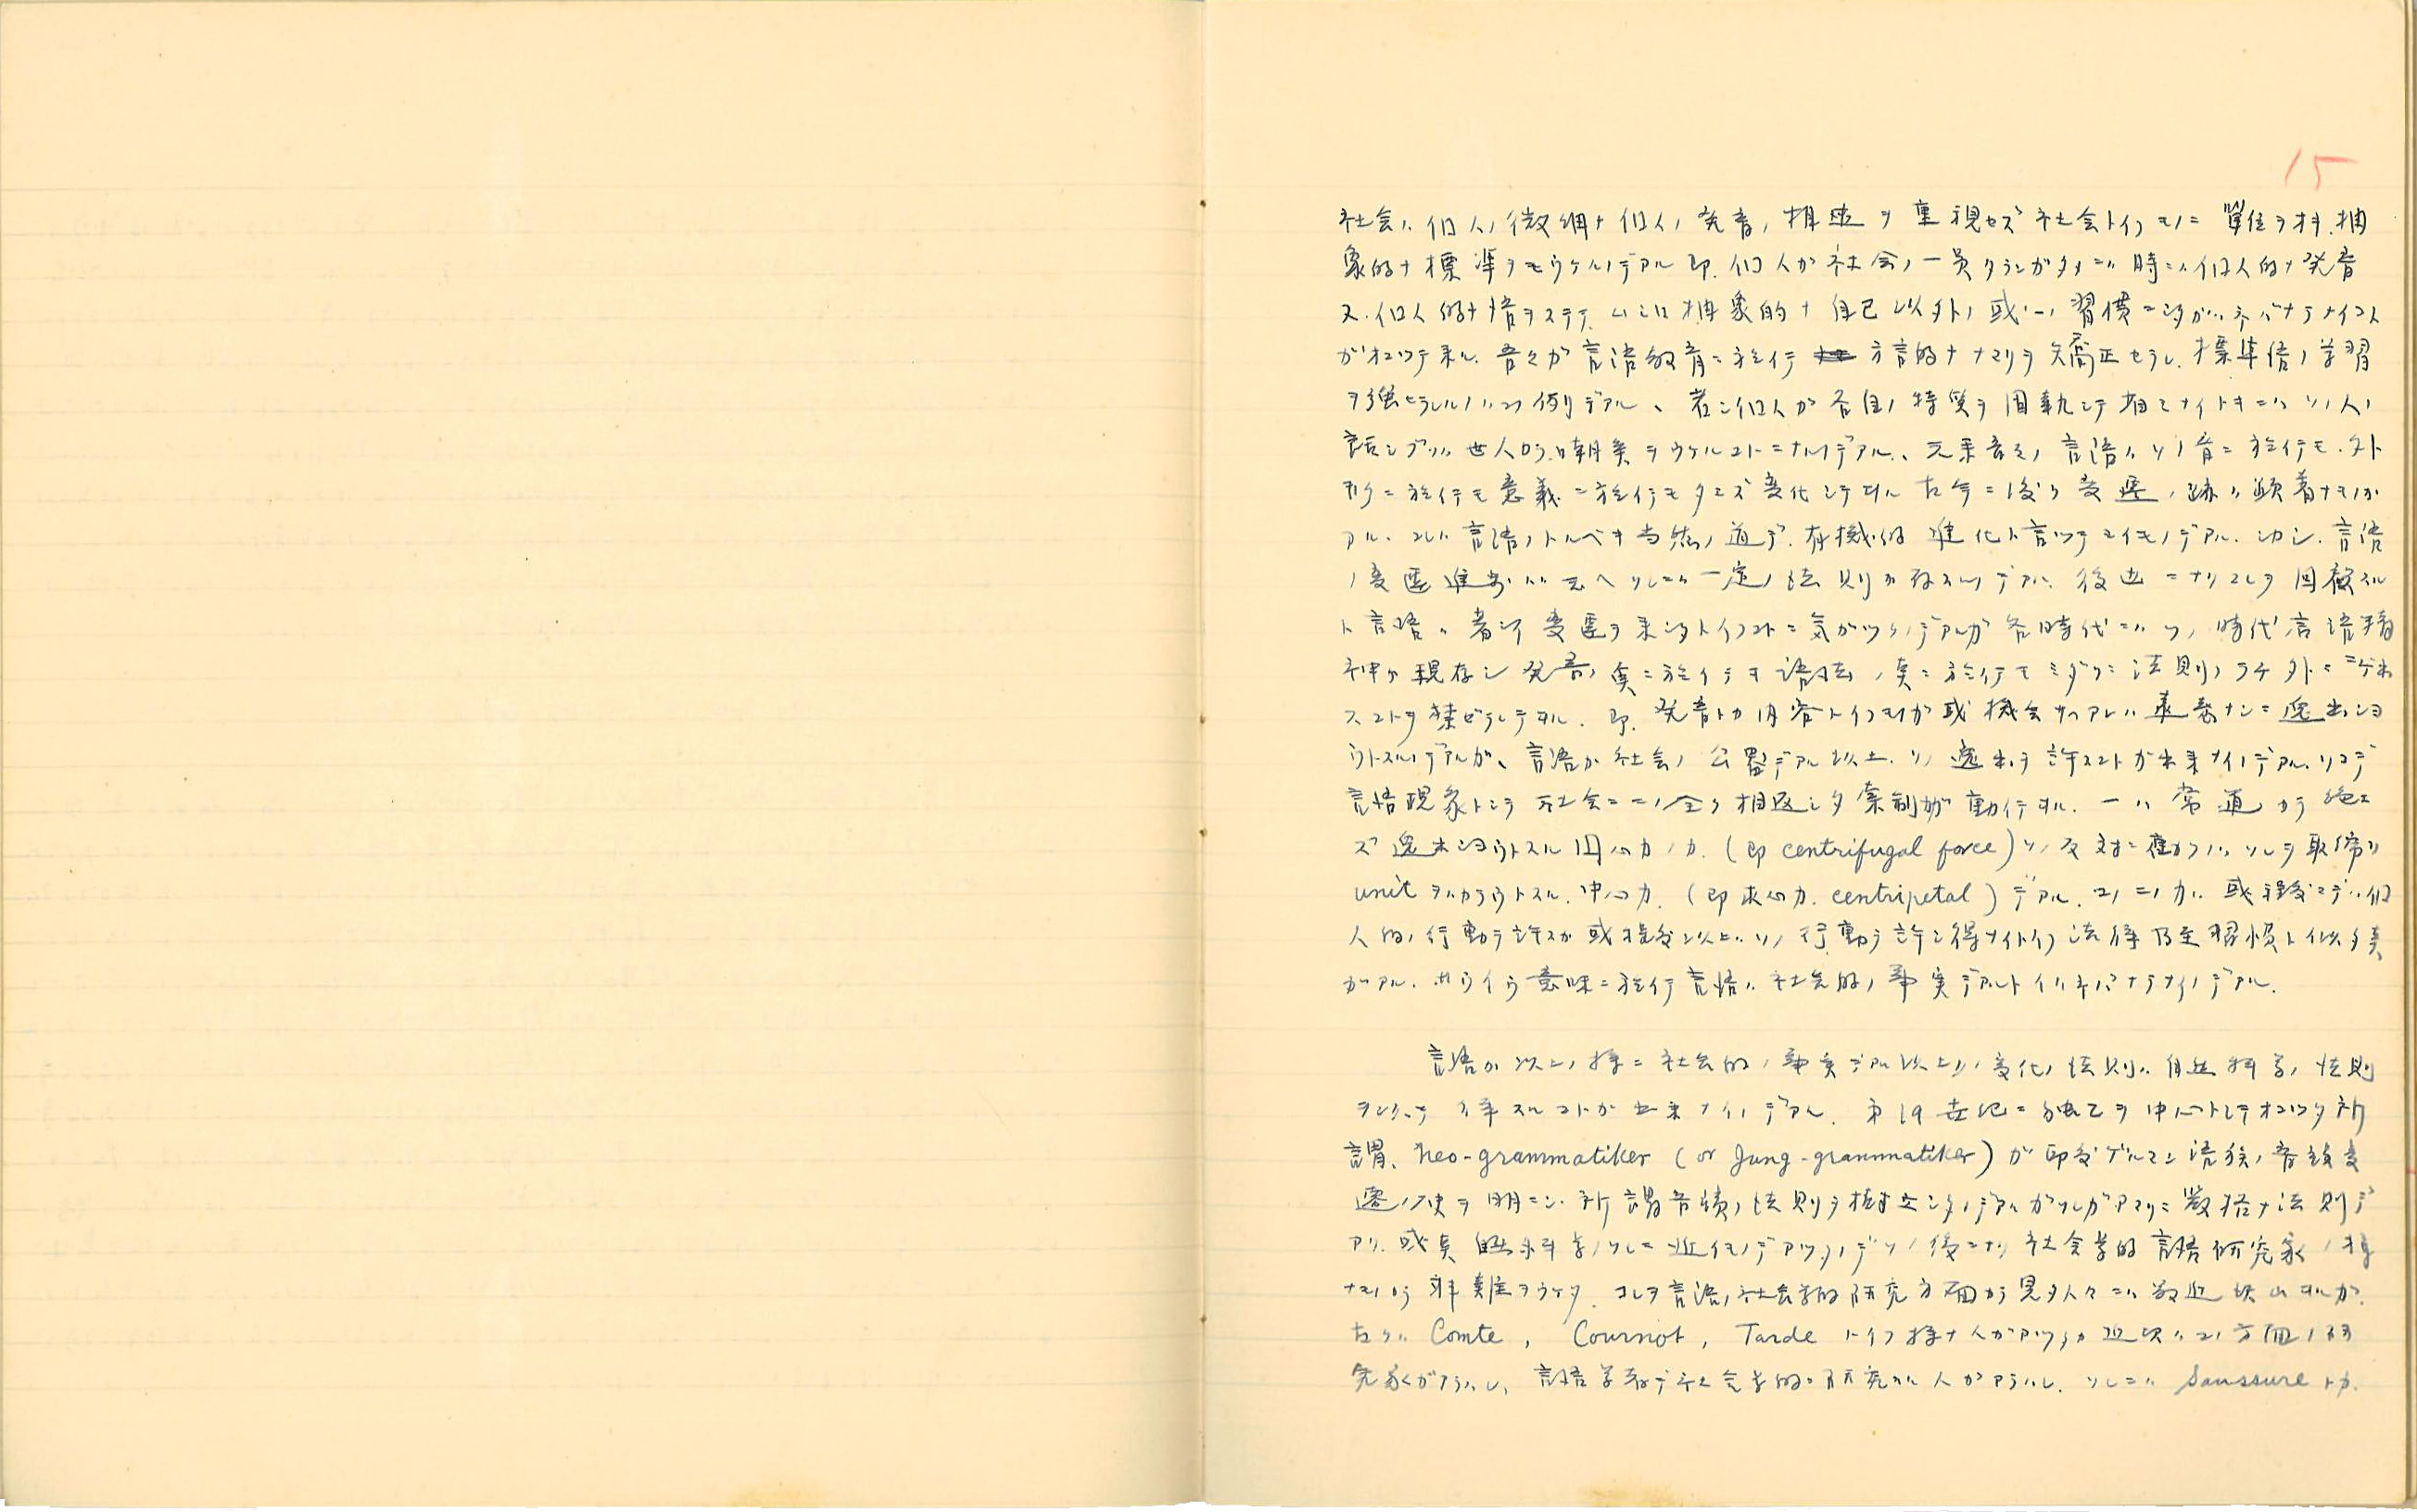 15
社会ハ個人ノ微細ナ個人ノ発音ノ相違ヲ重視セズ社会トイフモノニ単位ヲオキ抽
象的ナ標準ヲモウケルノデアル即個人ガ社会ノ一員タランガタメニハ時ニハ個人的ナ発音
又個人的ナ語ヲステテ ムシロ抽象的ナ自己以外ノ或ル習慣ニシタガハネバナラナイコト
ガオコツテ来ル 吾々ガ言語教育ニ於イテ 方言的ナナマリヲ矯正セラレ 標準語ノ学習
ヲ強ヒラレルノハコノ例デアル、若シ個人ガ各自ノ特質ヲ固執シテ ナイトキニハソノ人ノ
話シブリハ世人カラ嘲笑ヲウケルコトニナルノデアル、元来 言語ハソノ音ニ於イテモ 外
形ニ於イテモ意義ニ於イテモタエズ変化シテヰル 古今ニ渡ル変遷ノ跡ハ顕著ナモノガ
アル、コレハ言語ノトルベキ当然ノ道デ 有機的進化ト言ツテヨイモノデアル、シカシ 言語
ノ変遷進歩ハ云ヘソレニハ一定ノ法則ガ存スルノデアル、後世ニナリコレヲ回顧スル
ト言語ハ著シイ変遷ヲ来シタトイフコトニ気ガツクノデアルガ各時代ニハソノ時代言語精
神ガ現存シ発音ノ点ニ於イテモ語法ノ点ニ於イテモミダリニ法則ノラチ外ニニゲ出
スコトヲ禁ゼラレテヰル、即 発音トカ内容トイフモノガ或機会サヘアレバ 逸出シヨ
ウトスルノデアルガ、言語ガ社会ノ公器デアル以上 ソノ逸出ヲ許スコトガ出来ナイノデアル、ソコデ
言語現象トシテ社会ニ二ノ全ク相反シタ 制ガ働イテヰル、一ハ常道カラ絶エ
ズ逸出シヨウトスル 心力ノ力 (即 centrifugal force) ソノ反対ニ働ク力ハソレヲ取締リ
unit ヲハカラウトスル 中心力 (即 求心力 centripetal) デアル、コノ二ノ力ハ 或程度マデハ個
人的ノ行動ヲ許スガ或程度以上ハソノ行動ヲ許シ得ナイトイフ法律乃至習慣ト似タ点
ガアル、カウイウ意味ニ於イテ言語ハ社会的ノ事実デアルトイハネバナラナイノデアル、
言語ガ以上ノ様ニ社会的ノ事実デアル以上ハ変化ノ法則ハ自然科学ノ法則
ヲ 律スルコトガ出来ナイノデアル、第19世紀ニ独乙ヲ中心トシテオコツタ所
謂、neo-grammatiker (or Jung-grammatiker) ガ印度ゲルマン語族ノ音韻変
遷ノ史ヲ明ニシ 所謂音韻ノ法則ヲ樹立シタノデアルガソレガアマリニ厳格ナ法則デ
アリ 或点自然科学ノソレニ近イモノデアツタノデソノ後ニナリ社会学的言語研究家ノ
ナドカラ非難ヲウケタ、コレヲ言語ノ社会学的研究方面カラ見タ人々ニハ最近沢山ヰルガ、
古クハ Comte, Cournot, Tarde トイフ様ナ人ガアツタガ近頃ハコノ方面ノ研
究家ガアラハレ、言語学者デ社会学的ニ研究スル人ガアラハレ、ソレニハ Saussure トカ